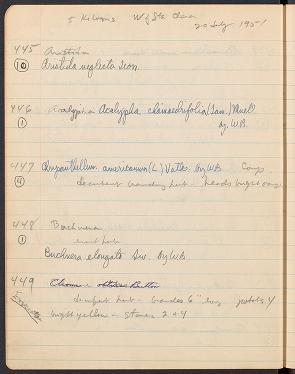 5 Kiloms W of Sta Clara
20 July 1951
445 Aristida
10 Aristida neglecta Leon.
446 Acalypha Acalypha chamaedrifolia (Lam.) Muell
1 by W.B.
447 Chrysanthellum americanum (L) Vatke. by WB Comp.
4 decumbent branching herb - heads bright orange
448 Buchnera
1 erect herb
Buchnera elongata Sw. by WB
449 Cleome
decumbent herb - branches 6" long petals 4
bright yellow - stamens 2 + 4